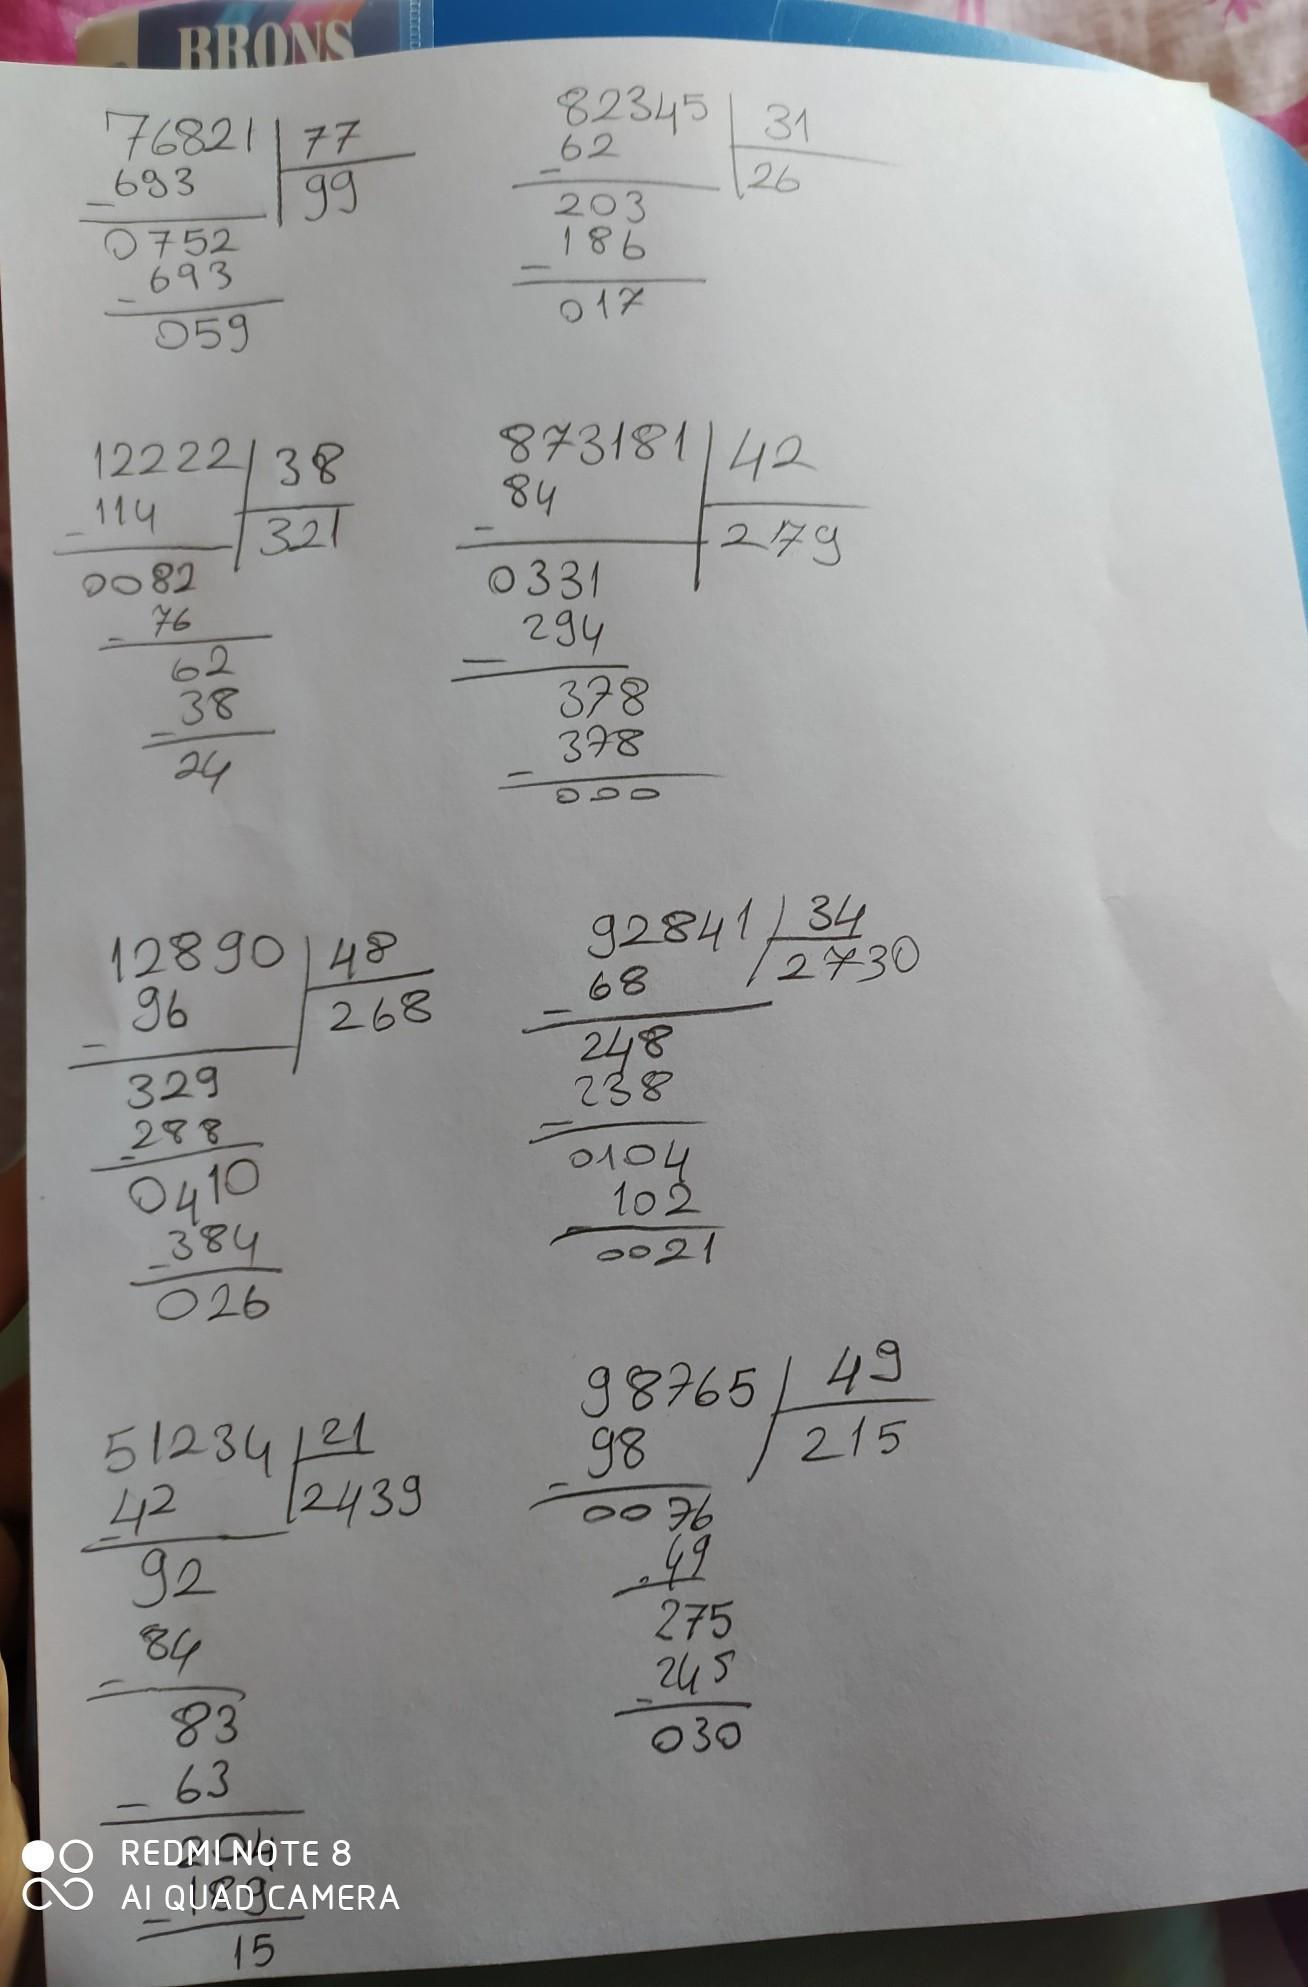 BRONS
76821 77
- 693 99
0752
- 693
059
82345 31
- 62 26
203
- 186
017
12222 38
- 114 321
0082
- 76
62
- 38
24
873181 42
- 84 279
0331
- 294
378
- 378
000
12890 48
- 96 268
329
- 288
0410
- 384
026
92841 34
- 68 2730
248
- 238
0104
- 102
0021
51234 21
- 42 2439
92
- 84
83
- 63
204
- 189
15
98765 49
- 98 215
0076
- 49
275
- 245
030
REDMI NOTE 8
AI QUAD CAMERA